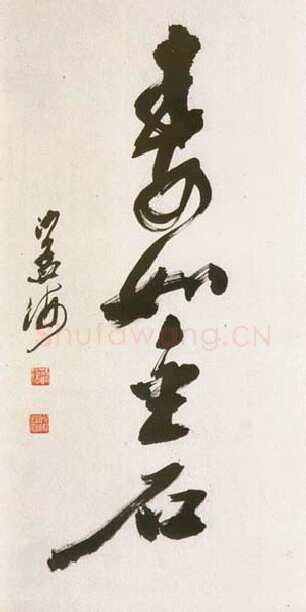 寿如金石
沙孟海
shufawang.CN